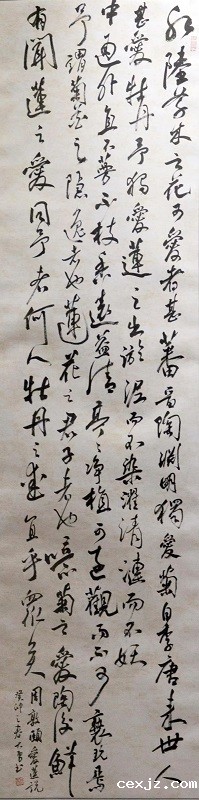 水陸草木之花可愛者甚蕃晉陶淵明獨愛菊自李唐來世人
甚愛牡丹予獨愛蓮之出淤泥而不染濯清漣而不妖
中通外直不蔓不枝香遠益清亭々净植可遠觀而不可褻玩焉
予謂菊花之隱逸者也蓮花之君子者也噫菊之愛陶後鮮
有聞蓮之愛同予者何人牡丹之愛宜乎眾矣
周敦頤愛蓮說
癸卯之春
cexjz.com